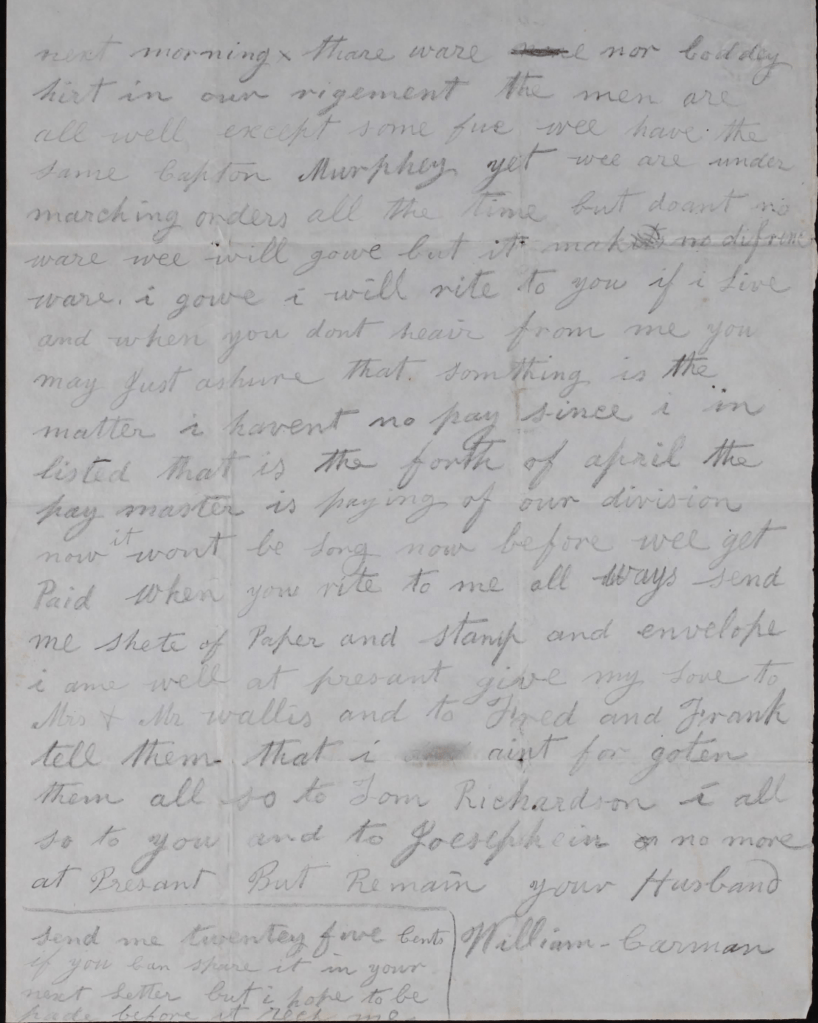 next morning x thare ware nor boddey
hirt in our rigement the men are
all well except some fue wee have the
same Capton Murphey yet wee are under
marching orders all the time but doant no
ware wee will gowe but it mak no difrenc
ware. i gowe i will rite to you if i live
and when you dont heair from me you
may Just ashure that. somthing is the
matter i havent no pay since i in
listed that is the forth of april the
pay master is paying of our division
now it wont be long now before wee get
Paid when you rite to me all ways send
me shete of Paper and stamp and envelope
i ame well at presant give my love to
Mrs & Mr wallis and to Fred and Frank
tell them that i aint for goten
them all so to Tom Richardson i all
so to you and to Joesephein no more
at Presant But Remain your Husband
William - Carman
send me twentey five Cents
if you Can spare it in your
next letter but i hope to be
pade before it rech me